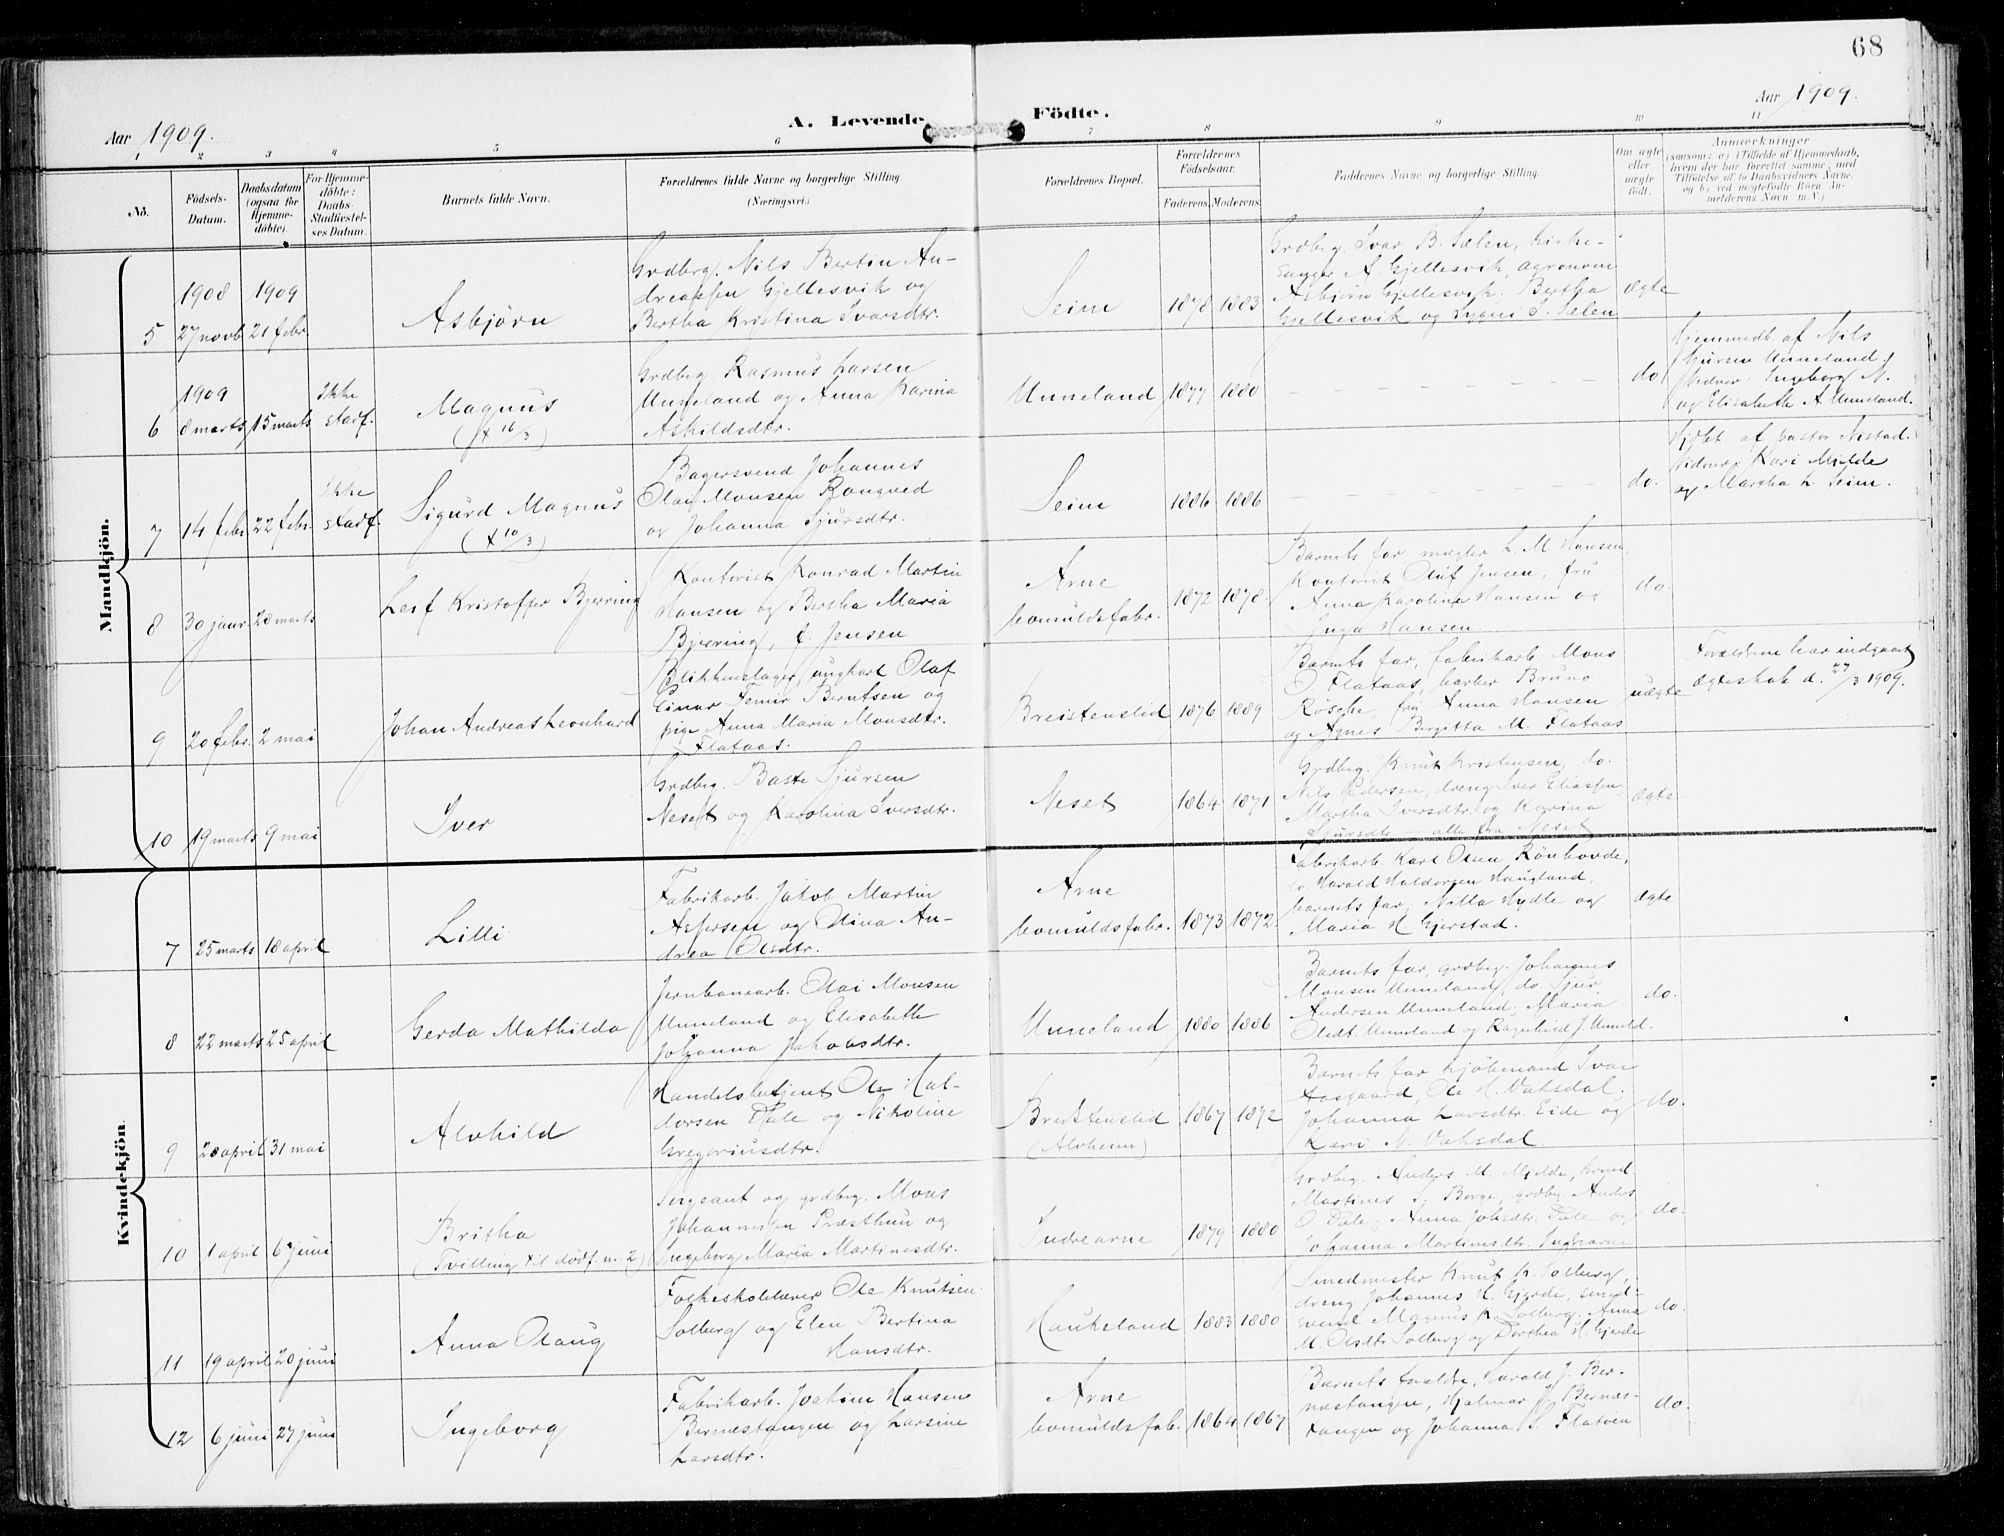 68
Aar 1909.
A. Levende Födte.
Aar 1909.
1 2 3 4 5 6 7 8 9 10 11
No.
Födsels-Datum.
Daabsdatum (ogsaa for Hjemme-döbte).
For Hjemme-döbte: Daabs-Stadfæstel-ses Datum.
Barnets fulde Navn.
Forældrenes fulde Navne og borgerlige Stilling
(Næringsvei.)
Forældrenes Bopæl.
Forældrenes Födselsaar.
Faderens. Moderens.
Faddernes Navne og borgerlige Stilling.
Om ægte eller uægte födt.
Anmerkninger
(saasom: a) i Tilfælde af Hjemmedaab, hvem der har forrettet samme, med Tilföielse af to Daabsvidners Navne, og b) ved uægtefödte Börn Anmelderens Navn m. V.)
Mandkjön.
5
1908
27 novb.
1909
21 febr.
Asbjörn
Grdbrg. Nils Bertin An-
dreassen Gjellesvik og
Bertha Kristina Ivarsdtr.
Seim
1878 1883
Grdbrg. Ivar B. Sælen, kirke-
sanger A. Gjellesvik, agronom
Asbjörn Gjellesvik. Bertha
Gjellesvik og I. Sælen
ægte
6
1909
8 marts
15 marts
Ikke
stadf.
Magnus
(† 16/3)
Grdbrg. Rasmus Larsen
Unneland og Anna Karina
Askildsdtr.
Unneland
1877 1880
do
Hjemmedt. af Nils
Unneland.
Vidner: Ingeborg N.
og Elisabeth A. Unneland.
7
14 febr.
22 febr.
Ikke
stadf.
Sigurd Magnus
(† 10/3)
Bagersvend Johannes
Olai Monsen Rongved
og Johanna Sjursdtr.
Seim
1886 1886
do.
Hjdbt. af pastor Nistad.
Vidner: Kari Mjelde
og Martha L. Seim.
8
30 janr.
28 marts
Leif Kristoffer Bjerring
Kontorist Konrad Martin
Hansen og Bertha Maria
Bjerring, f. Jensen
Arne
bomuldsfabr.
1872 1878
Barnets far, mægler L. M. Hansen,
Kontorist Oluf Jensen, fru
Anna Karolina Hansen og
Inga Hansen.
do.
9
20 febr.
2 mai
Johan Andreas Leonhard
Blikkenslager, ungkarl Olaf
Einar Bentsen og
pige Anna Maria Monsdtr.
Flataas.
Breistenslid
1876 1889
Barnets far, fabrikarb. Mons
O. Flataas, barber Bruno
Rösche, fru Anna Hansen
og Agnes Bergitta M. Flataas
uægte
Forældrene har indgaaet
ægteskab d. 27/3 1909.
10
19 marts
9 mai
Iver
Grdbrg. Baste Sjursen
Neset og Karolina Iversdtr.
Neset
1864 1871
Grdbrg. Knut Kristensen, do.
Nils Pedersen, dreng Iver Eliassen,
Martha Iversdtr. og Karina
Sjursdtr. – alle fra Neset
ægte
Kvindekjön.
7
25 marts
18 april
Lilli
Fabrikarb. Jakob Martin
Aspersen og Olina An-
drea Olsdtr.
Arne
bomuldsfabr.
1873 1872
Fabrikarb. Karl Olsen Rönhovde,
do. Harald Haldorsen Haugland,
barnets far, Nilla Hydle og
Maria H. Gjerstad.
ægte
8
22 marts
25 april
Gerda Mathilda
Jernbanearb. Olai Monsen
Unneland og Elisabeth
Johanna Jakobsdtr.
Unneland
1880 1886
Barnets far, grdbrg. Johannes
Monsen Unneland, do. Sjur
Andersen Unneland. Maria
Olsdt. Unneland og Ragnhild J. Unneld.
do.
9
28 april
31 mai
Alvhild
Handelsbetjent Ole Hal-
dorsen Dale og Nikoline
Gregoriusdtr.
Breistenslid
(Alvheim)
1867 1872
Barnets far, kjöbmand Ivar
Aasgaard, Ole H. Vaksdal,
Johanna Larsdtr. Eide og
Kari N. Vaksdal.
do.
10
1 april
6 juni
Britha
(Tvilling til dödf. n. 2)
Sergeant og grdbrg. Mons
Johannesen Præsthun og
Ingeborg Maria Martinesdtr.
Indrearne
1879 1880
Grdbrg. Anders M. Mjelde,
Martines J. Borge, grdbrg. Anders
O. Dale, Anna Johsdtr. Dale og
Johanna Martinesdtr. Indrearne
do.
11
19 april
20 juni
Anna Olaug
Folkeskolelærer Ole Knutsen
Solberg og Elen Bertina
Hansdtr.
Haukeland
1883 1880
Smedmester Knut K. Solberg,
dreng Johannes H. Gjerde, smed-
svend Magnus K. Solberg, Anna
M. Olsdtr. Solberg og Dorthea H. Gjerde
do.
12
6 juni
27 juni
Ingeborg
Fabrikarb. Joakim Hansen
Bernestangen og Larsine
Larsdtr.
Arne
bomuldsfab.
1864 1867
Barnets forældre, Harald J. Ber-
nestangen, Hjalmar J. Bernes-
tangen og Johanna S. Flatöen
do.